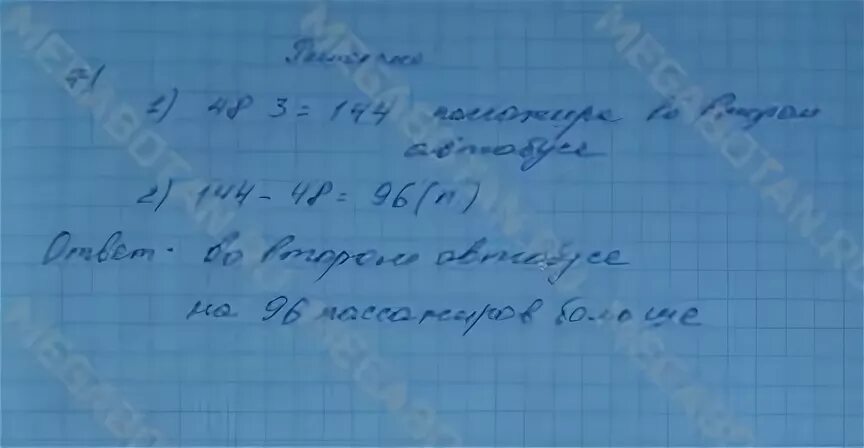 Решение
№1
1) 48 3 = 144 пассажира во втором
автобусе
2) 144 - 48 = 96 (п)
Ответ. Во втором автобусе
на 96 пассажиров больше
MEGABOTAN.RU